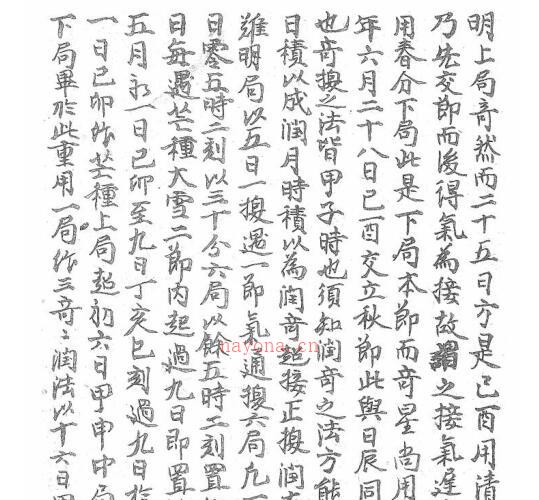 明上局竒然而二十五日方是己酉用清
乃先交節而後得氣為接故謂之接氣遅
用春分下局此是下局本節而竒星尚用
年六月二十八日己酉交立秋節此與日辰同
也竒換之法皆甲子時也須知閏竒之法方能
日積以成閏月時積以為閏竒超接正換閏
難明局以五日一換遇一節氣通換六局凢
日零五時二刻以三十分六局以餘五時二刻置
日每遇芒種大雪二節内起過九日即置
五月初一日己卯至九日丁亥巳刻過九日
一日己卯作芒種上局超初六日甲申中局
下局畢於此重用一局作三竒二閏法以十六日
nayona.cn